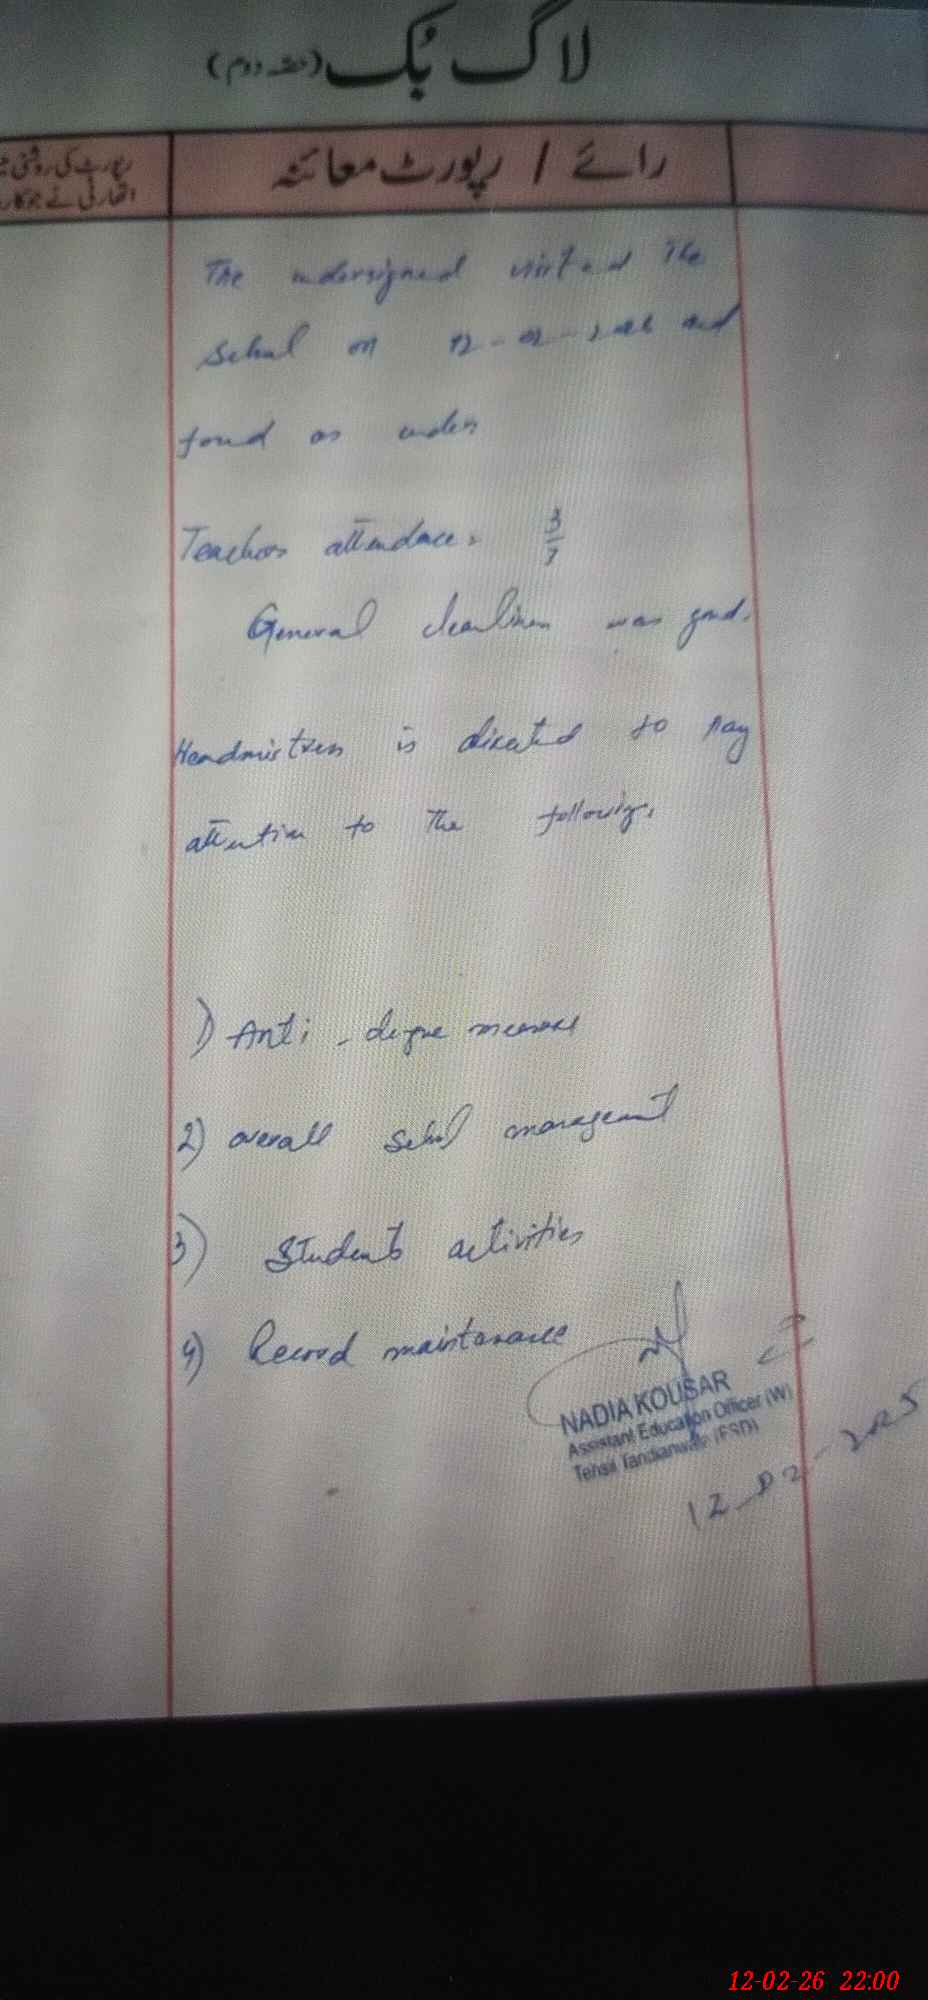 لاگ بُک (حصہ دوم)
رائے / رپورٹ معائنہ
رپورٹ کی روشنی میں
اتھارٹی نے جو کار
The undersigned visited The
School on 12-02-2026 and
found as under
Teachers attendace. 3/7
General cleanliness was good.
Headmistress is directed to pay
attention to The following.
1) Anti - degue measures
2) overall School management
3) Students activities
4) Record maintanance
NADIA KOUSAR
Assistant Education Officer (W)
Tehsil Tandianwala (FSD)
12-02-2025
12-02-26 22:00